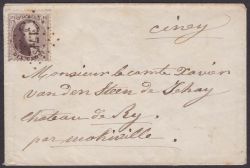 ciney
Monsieur le comte Xavier
van den Steen de Jehay
chateau de Ry
par mohiville